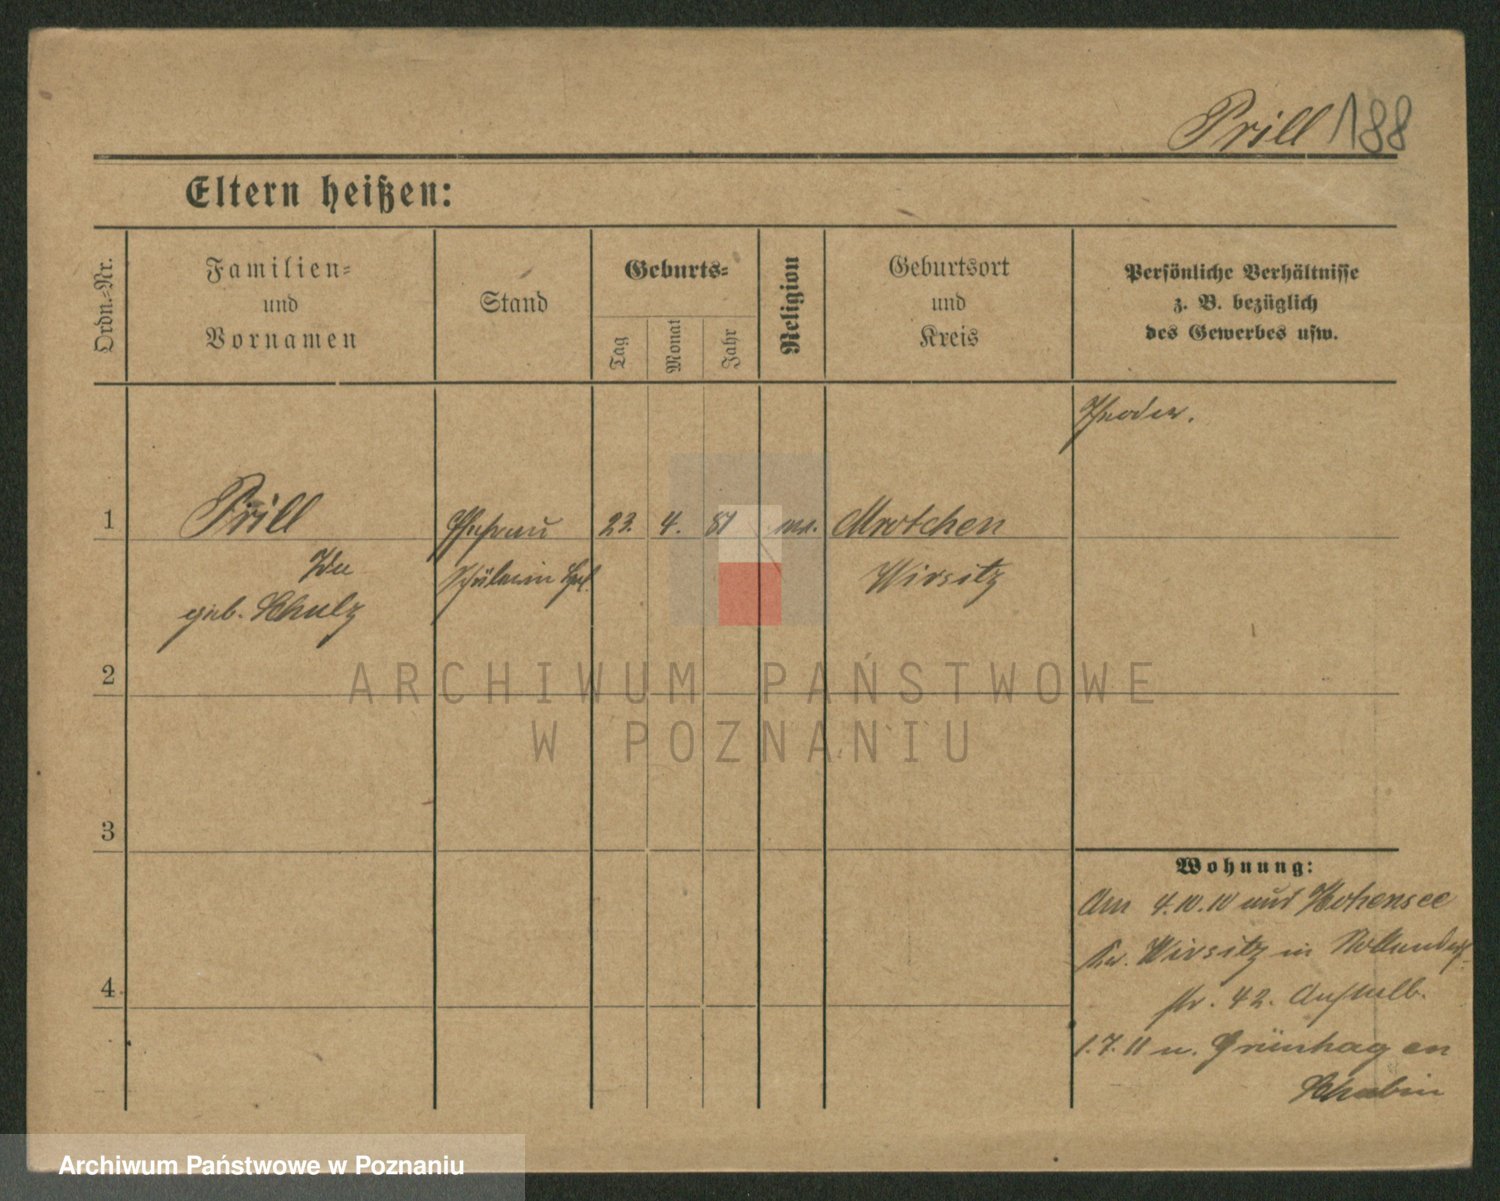 Prill 188
Eltern heißen:
Ordn.-Nr.
Familien-
und
Vornamen
Stand
Geburts-
Tag
Monat
Jahr
Religion
Geburtsort
und
Kreis
Persönliche Verhältnisse
z. B. bezüglich
des Gewerbes usw.
1
Prill
Ida
geb. Schulz
Ehefrau
23. 4. 81
Mrotchen
Wirsitz
2
3
4
Wohnung:
Am 4.10.10 aus Hohensee
Kr. Wirsitz in
str. 42.
1.7.11 n. Grünhagen
Schubin
ARCHIWUM PAŃSTWOWE
W POZNANIU
Archiwum Państwowe w Poznaniu